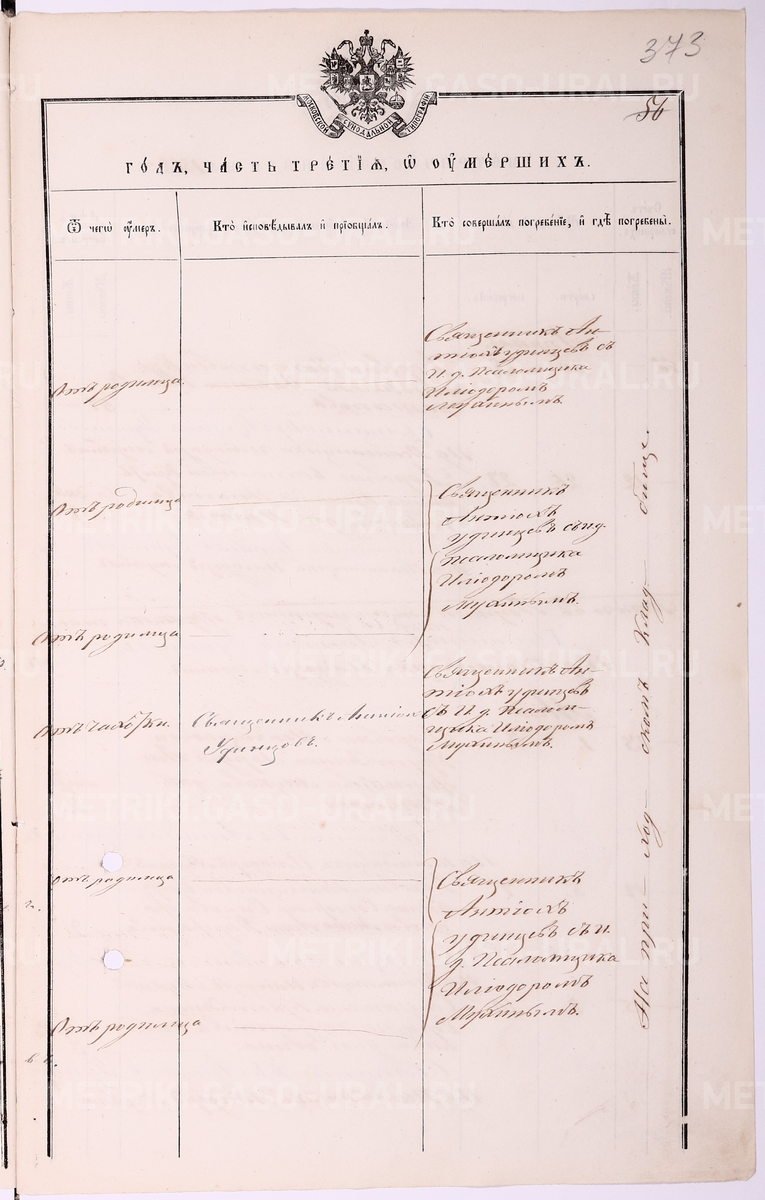 373
56
МОСКОВСКОЙ СѴНОДАЛЬНОЙ ТИПОГРАФІИ
ГО́ДЪ, ЧА́СТЬ ТРЕ́ТІѦ, Ѡ҆ ОУ҆МЕ́РШИХЪ.
Ѿ чегѡ̀ оу҆́меръ.
Кто̀ и҆сповѣ́дывалъ и҆ прїѡбща́лъ.
Кто̀ соверша́лъ погребе́нїе, и҆ гдѣ̀ погребены̀.
Отъ родимца.
Священникъ Ан-
тіохъ Удинцевъ съ
И. д. Псаломщика
Иліодоромъ
Мухинымъ.
Отъ родимца
Священникъ
Антіохъ
Удинцевъ съ и д.
псаломщика
Иліодоромъ
Мухинымъ.
Отъ родимца
Отъ чахотки.
Священникъ Антіохъ
Удинцовъ.
Священникъ Ан-
тіохъ Удинцевъ
съ И. д. Псалом-
щика Иліодоромъ
Мухинымъ.
отъ родимца
Священникъ
Антіохъ
Удинцевъ съ и.
д. Псаломщика
Иліодоромъ
Мухинымъ.
Отъ родимца
На при- ход- скомъ клад- бище.
METRIKI.GASO-URAL.RU